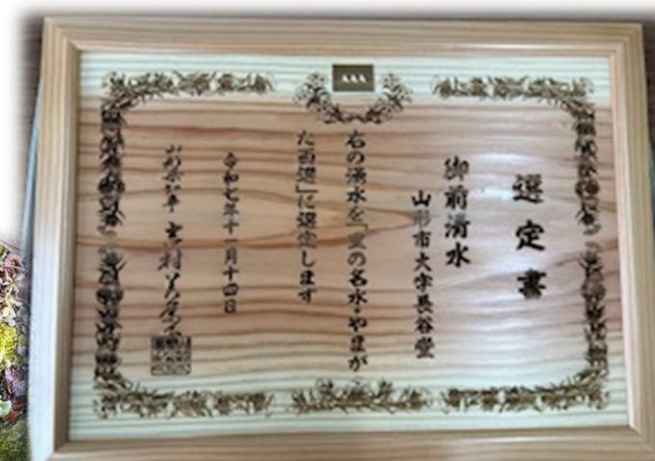 選定書
御前清水
山形市大字長谷堂
右の湧水を「里の名水・やまが
た百選」に選定します
令和七年十一月十四日
山形県知事 吉村美栄子